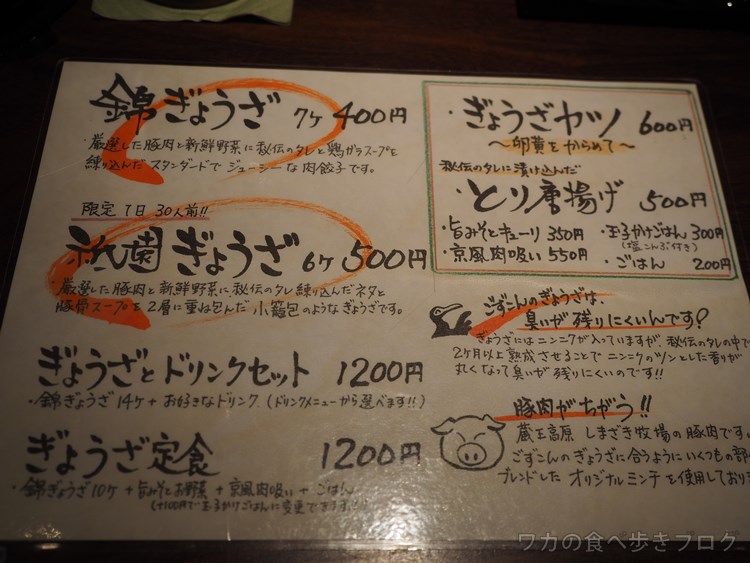 錦ぎょうざ 7ヶ 400円
・厳選した豚肉と新鮮野菜に秘伝のタレと鶏ガラスープを
練り込んだスタンダードでジューシーな肉餃子です。
限定1日30人前!!
祇園ぎょうざ 6ヶ 500円
・厳選した豚肉と新鮮野菜に、秘伝のタレ練り込んだネタと
豚骨スープを2層に重ね包んだ小籠包のようなぎょうざです。
ぎょうざとドリンクセット 1200円
・錦ぎょうざ14ヶ+お好きなドリンク(ドリンクメニューから選べます!!)
ぎょうざ定食 1200円
・錦ぎょうざ10ヶ+旨みそとお野菜+京風肉吸い+ごはん
(+100円で玉子かけごはんに変更できます
・ぎょうざカツ 600円
〜卵黄をからめて〜
秘伝のタレに漬け込んだ
・とり唐揚げ 500円
・旨みそとキューリ 350円
・玉子かけごはん 300円
(塩こんぶ付き)
・京風肉吸い 550円
・ごはん 200円
ごずこんのぎょうざは、
臭いが残りにくいんです?
ぎょうざにはニンニクが入っていますが、秘伝のタレの中で
2ヶ月以上熟成させることでニンニクのツンとした香りが
丸くなって臭いが残りにくいのです!!
豚肉がちがう!!
蔵王高原 しまざき牧場の豚肉です。
ごずこんのぎょうざに合うようにいくつもの部
ブレンドしたオリジナルミンチを使用しており
ワカの食べ歩きブログ